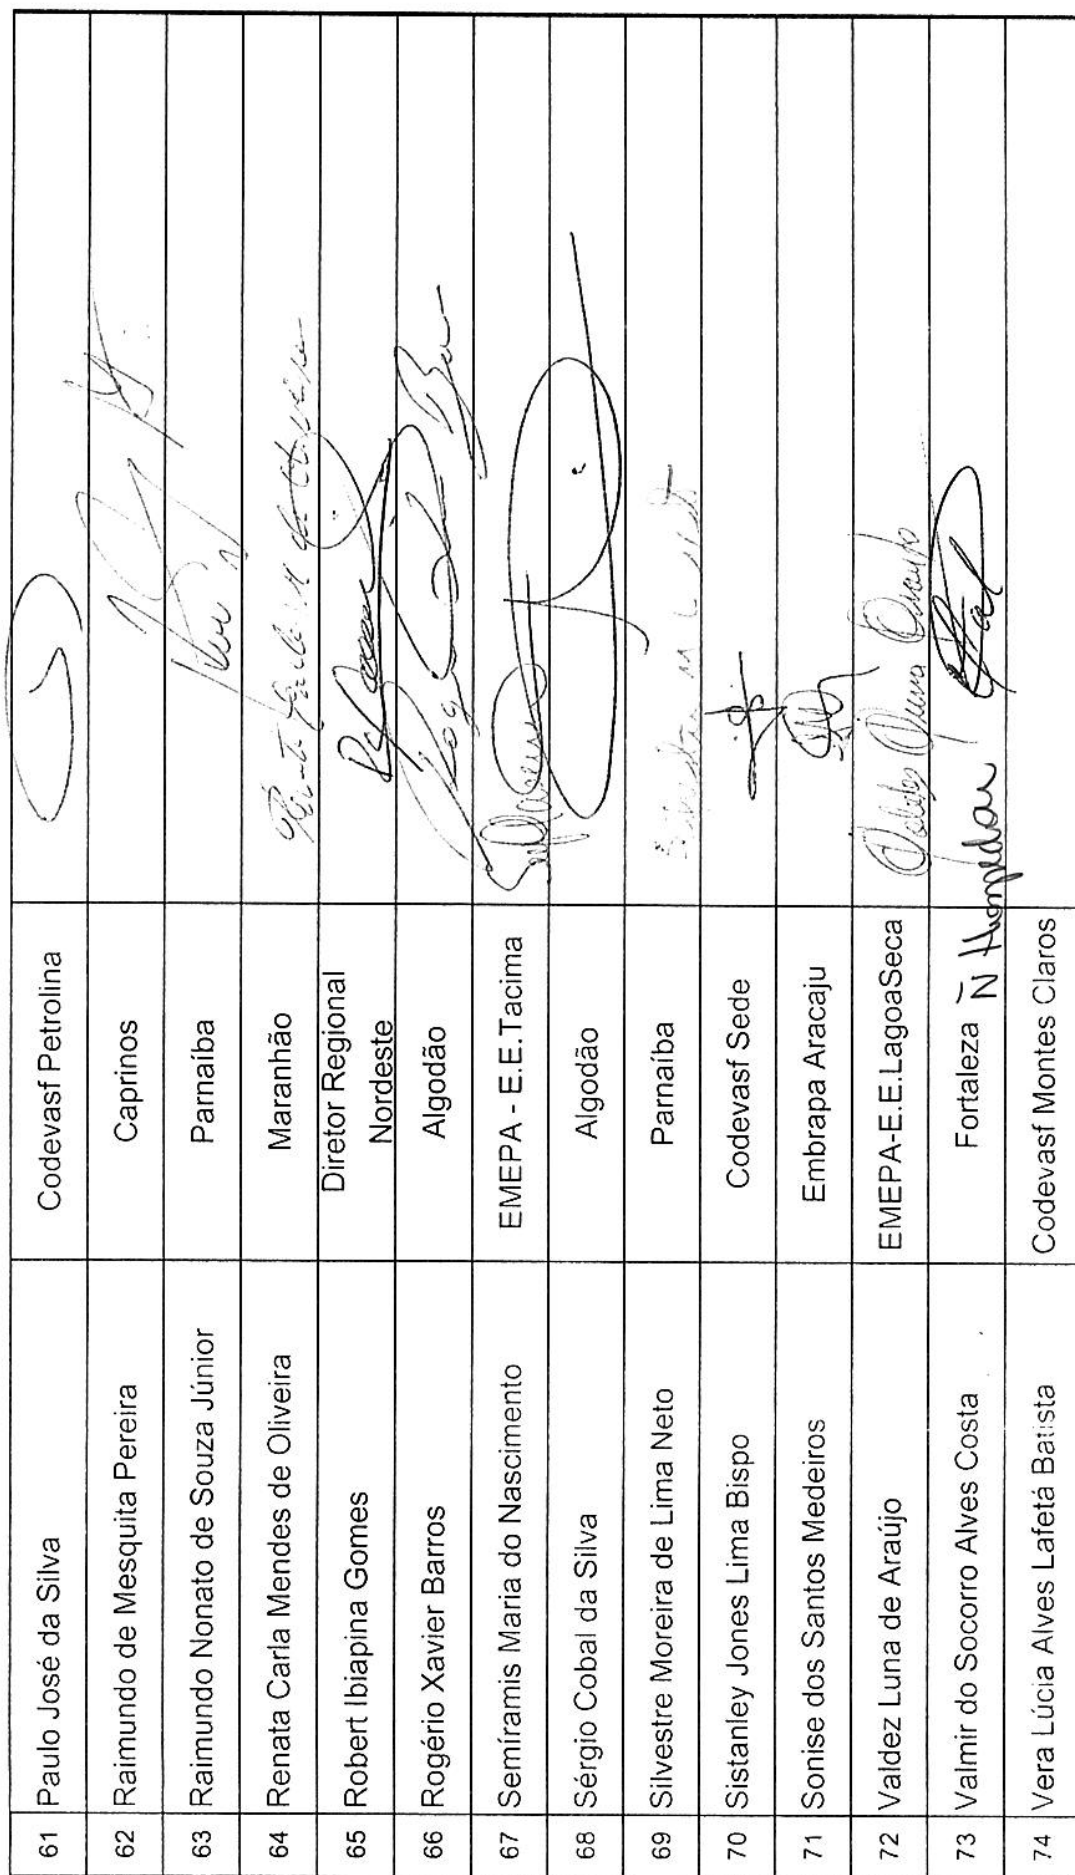 61 Paulo José da Silva Codevasf Petrolina
62 Raimundo de Mesquita Pereira Caprinos
63 Raimundo Nonato de Souza Júnior Parnaíba
64 Renata Carla Mendes de Oliveira Maranhão
65 Robert Ibiapina Gomes Diretor Regional
Nordeste
66 Rogério Xavier Barros Algodão
67 Semíramis Maria do Nascimento EMEPA - E.E.Tacima
68 Sérgio Cobal da Silva Algodão
69 Silvestre Moreira de Lima Neto Parnaíba
70 Sistanley Jones Lima Bispo Codevasf Sede
71 Sonise dos Santos Medeiros Embrapa Aracaju
72 Valdez Luna de Araújo EMEPA-E.E.LagoaSeca
73 Valmir do Socorro Alves Costa Fortaleza
74 Vera Lúcia Alves Lafetá Batista Codevasf Montes Claros